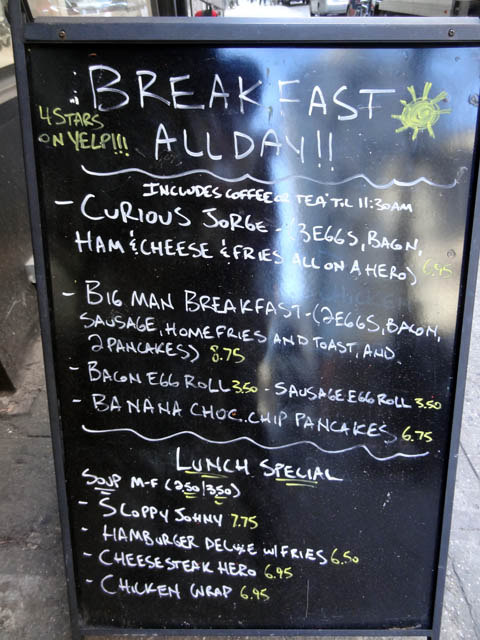 BREAKFAST
4 STARS
ON YELP!!!
ALL DAY!!
INCLUDES COFFEE OR TEA 'TIL 11:30AM
- CURIOUS JORGE - (3 EGGS, BACON,
HAM & CHEESE & FRIES ALL ON A HERO) 6.95
- BIG MAN BREAKFAST - (2 EGGS, BACON,
SAUSAGE, HOMEFRIES AND TOAST, AND
2 PANCAKES) 8.75
- BACON EGG ROLL 3.50 - SAUSAGE EGG ROLL 3.50
- BANANA CHOC. CHIP PANCAKES 6.75
LUNCH SPECIAL
SOUP M-F (2.50/3.50)
- SLOPPY JOHNY 7.75
- HAMBURGER DELUXE W/FRIES 6.50
- CHEESESTEAK HERO 6.95
- CHICKEN WRAP 6.95